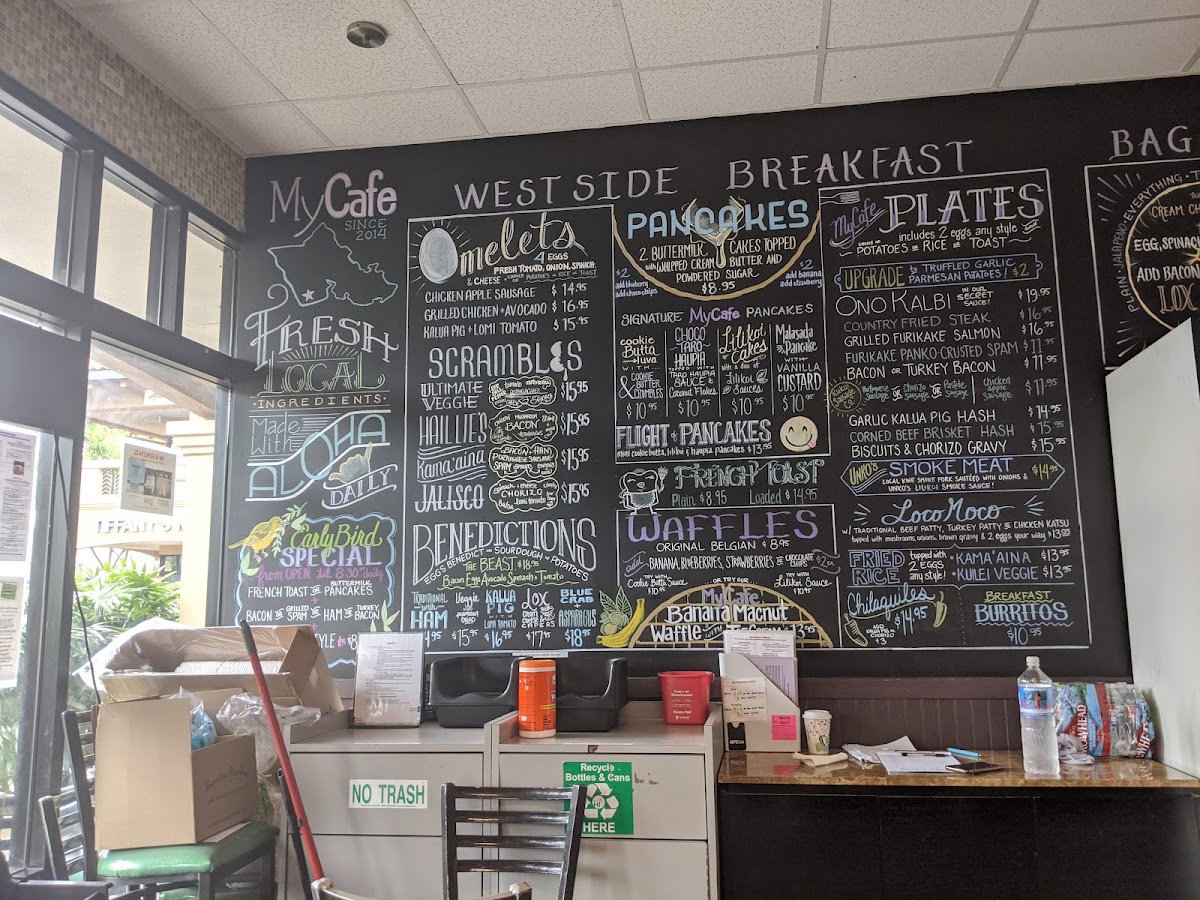 MyCafe
SINCE
2014
FRESH
LOCAL
INGREDIENTS
Made
With
ALOHA
DAILY
Early Bird
SPECIAL
from OPEN til 8:30
FRENCH TOAST OR BUTTERMILK PANCAKES
BACON OR GRILLED SPAM OR HAM OR TURKEY BACON
WEST SIDE BREAKFAST
Omelets
4 EGGS
FRESH TOMATO, ONION, SPINACH
& CHEESE CHOICE OF POTATOES OR RICE OR TOAST
CHICKEN APPLE SAUSAGE $14.95
GRILLED CHICKEN + AVOCADO $16.95
KALUA PIG + LOMI TOMATO $15.95
SCRAMBLES
ULTIMATE
VEGGIE $15.95
HAILIE'S BACON $15.95
Kama'aina BACON HAM PORTUGUESE SAUSAGE SPAM $15.95
JALISCO CHORIZO $15.95
BENEDICTIONS
EGGS BENEDICT - SOURDOUGH POTATOES
THE BEAST $18.95
Bacon Eggs Avocado Spinach + Tomato
TRADITIONAL with HAM
Veggie $15.95
KALUA PIG LOMI TOMATO $16.95
LOX $17.95
BLUE CRAB + ASPARAGUS $18.95
PANCAKES
2 BUTTERMILK CAKES TOPPED
with WHIPPED CREAM BUTTER AND
POWDERED SUGAR
$8.95
$2
add blueberry
add choco chips
$2
add banana
add strawberry
SIGNATURE MyCafe PANCAKES
cookie
Butta
luva
WITH
COOKIE
& BUTTER
CRUMBLES
$10.95
CHOCO-
TARO
HAUPIA
TOPPED WITH
TARO HAUPIA
SAUCE &
Coconut Flakes
$10.95
Lilikoi
Cakes
Lilikoi
Sauces
$10.95
Malasada
Pancake
WITH
VANILLA
CUSTARD
$10.95
FLIGHT of PANCAKES
mini cookie butta, lilikoi & haupia pancakes $13.95
FRENCH TOAST
Plain $8.95 Loaded $14.95
WAFFLES
ORIGINAL BELGIAN $8.95
add BANANA, BLUEBERRIES, STRAWBERRIES OR CHOCOLATE CHIPS $2 ea
TRY WITH
Cookie Butta Sauce
$10.95
TRY WITH
Lilikoi Sauce
$10.95
OR TRY OUR
MyCafe
Banana Macnut
Waffle
MyCafe PLATES
includes 2 eggs any style
CHOICE OF POTATOES OR RICE OR TOAST
UPGRADE to TRUFFLED GARLIC
PARMESAN POTATOES! $2
ONO KALBI IN OUR SECRET SAUCE! $19.95
COUNTRY FRIED STEAK $16.95
GRILLED FURIKAKE SALMON $16.95
FURIKAKE PANKO-CRUSTED SPAM $11.95
BACON OR TURKEY BACON $11.95
Portuguese Sausage OR Chorizo Sausage OR Pastele Sausage OR Chicken apple Sausage $11.95
GARLIC KALUA PIG HASH $14.95
CORNED BEEF BRISKET HASH $15.95
BISCUITS & CHORIZO GRAVY $15.95
UNKO'S SMOKE MEAT $14.95
LOCAL KINE SMOKE PORK SAUTÉED WITH ONIONS &
UNKO'S LILIKOI SMOKE SAUCE!
Loco Moco
W/ TRADITIONAL BEEF PATTY, TURKEY PATTY OR CHICKEN KATSU
topped with mushrooms, onions, brown gravy & 2 eggs your way $13.95
FRIED
RICE
topped with
2 EGGS
any style!
KAMA'AINA $13.95
KUILEI VEGGIE $13.95
Chilaquiles
$14.95
ADD
KALUA PIG OR
CHORIZO
$3
BREAKFAST
BURRITOS
$10.95
BAG
PLAIN · JALAPEÑO · EVERYTHING
CREAM CH
EGG, SPINAC
ADD BACON
LOX
WARNING
NO TRASH
Recycle
Bottles & Cans
HI
HERE